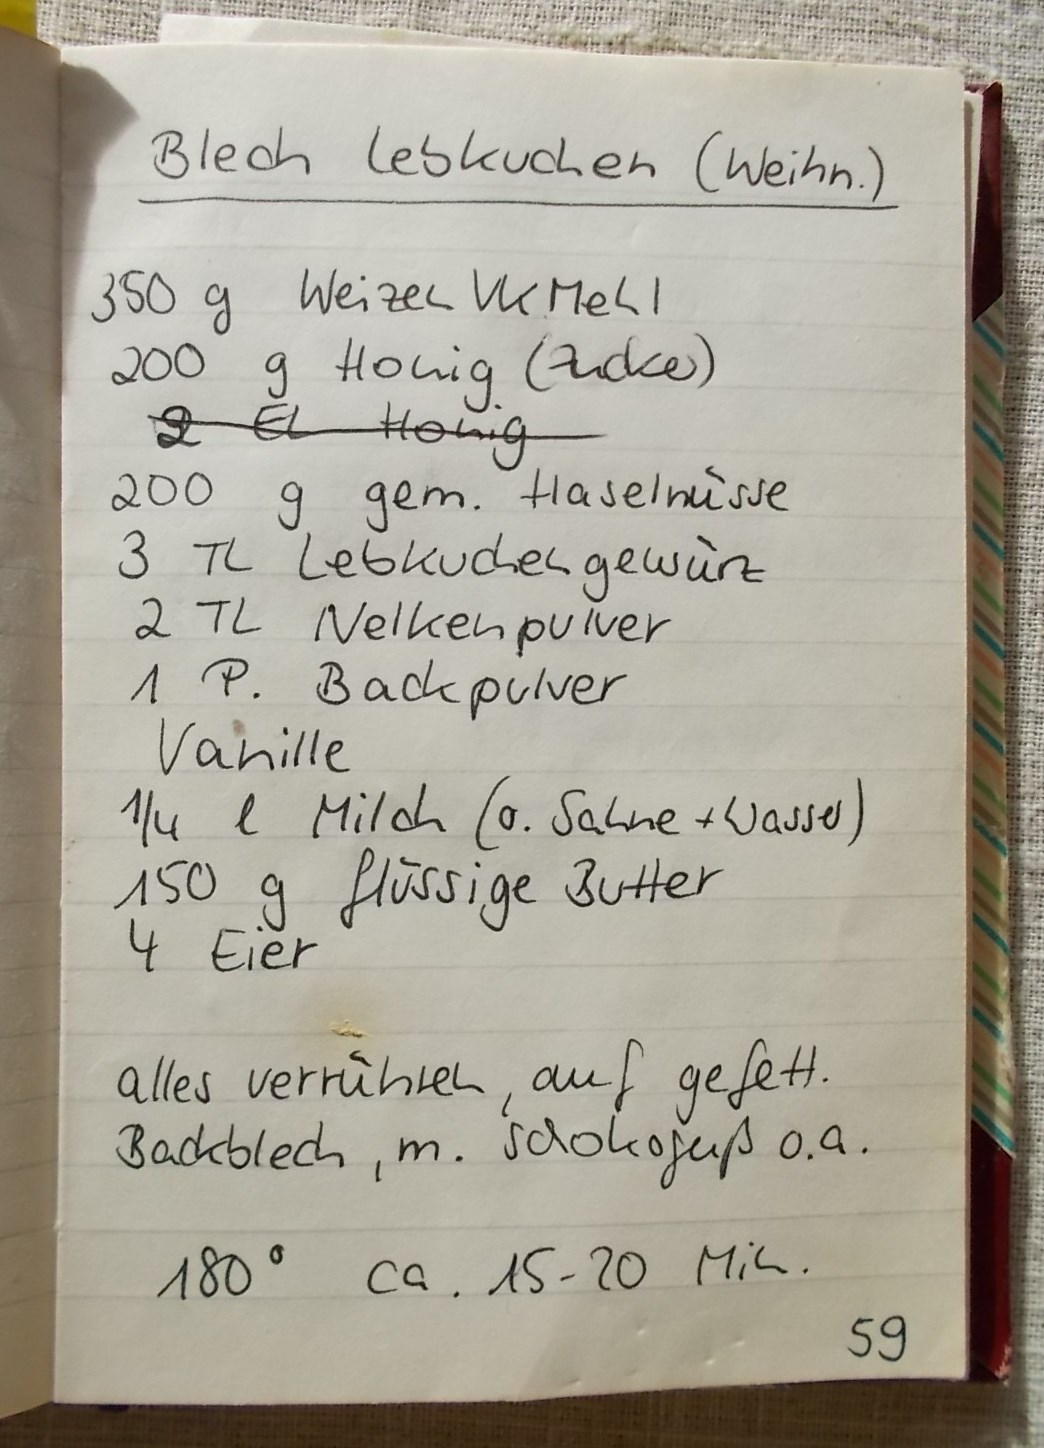 Blech Lebkuchen (Weihn.)
350 g Weizen VK Mehl
200 g Honig (Zucker)
2 EL Honig
200 g gem. Haselnüsse
3 TL Lebkuchengewürz
2 TL Nelkenpulver
1 P. Backpulver
Vanille
1/4 l Milch (o. Sahne + Wasser)
150 g flüssige Butter
4 Eier
alles verrühren, auf gefett.
Backblech, m. Schokoguß o.a.
180° ca. 15-20 Min.
59